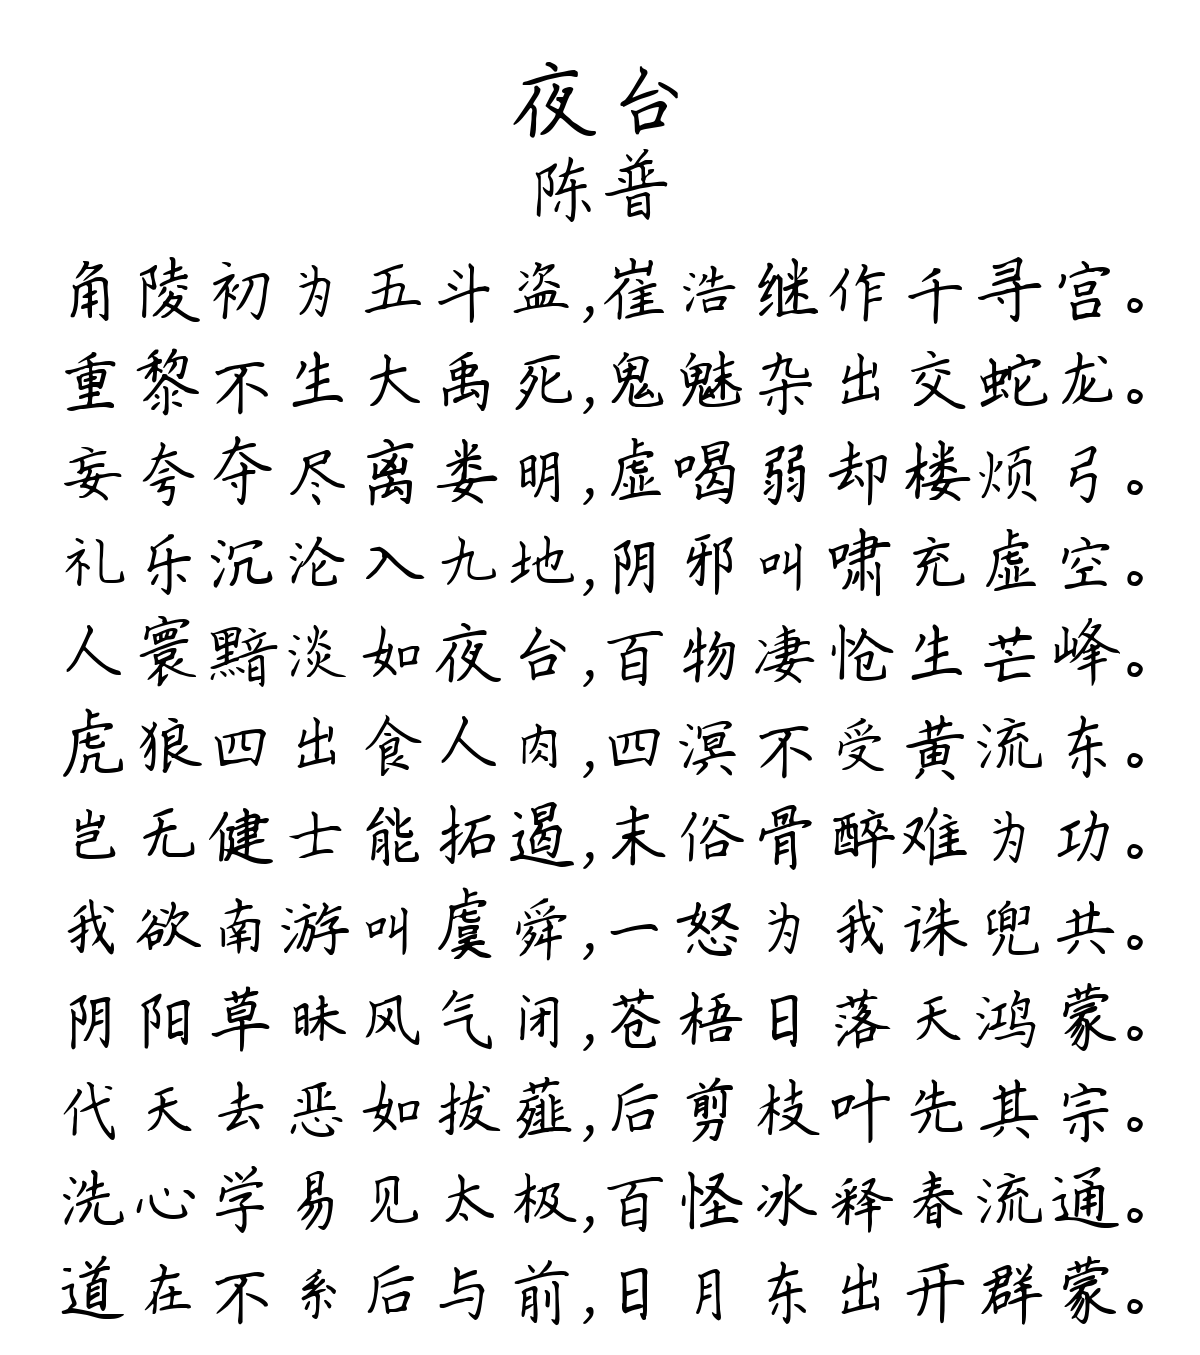 夜台
陈普
角陵初为五斗盗,崔浩继作千寻宫。
重黎不生大禹死,鬼魅杂出交蛇龙。
妄夸夺尽离娄明,虚喝弱却楼烦弓。
礼乐沉沦入九地,阴邪叫啸充虚空。
人寰黯淡如夜台,百物凄怆生芒峰。
虎狼四出食人肉,四溟不受黄流东。
岂无健士能拓遏,末俗骨醉难为功。
我欲南游叫虞舜,一怒为我诛兜共。
阴阳草昧风气闭,苍梧日落天鸿蒙。
代天去恶如拔薤,后剪枝叶先其宗。
洗心学易见太极,百怪冰释春流通。
道在不系后与前,日月东出开群蒙。